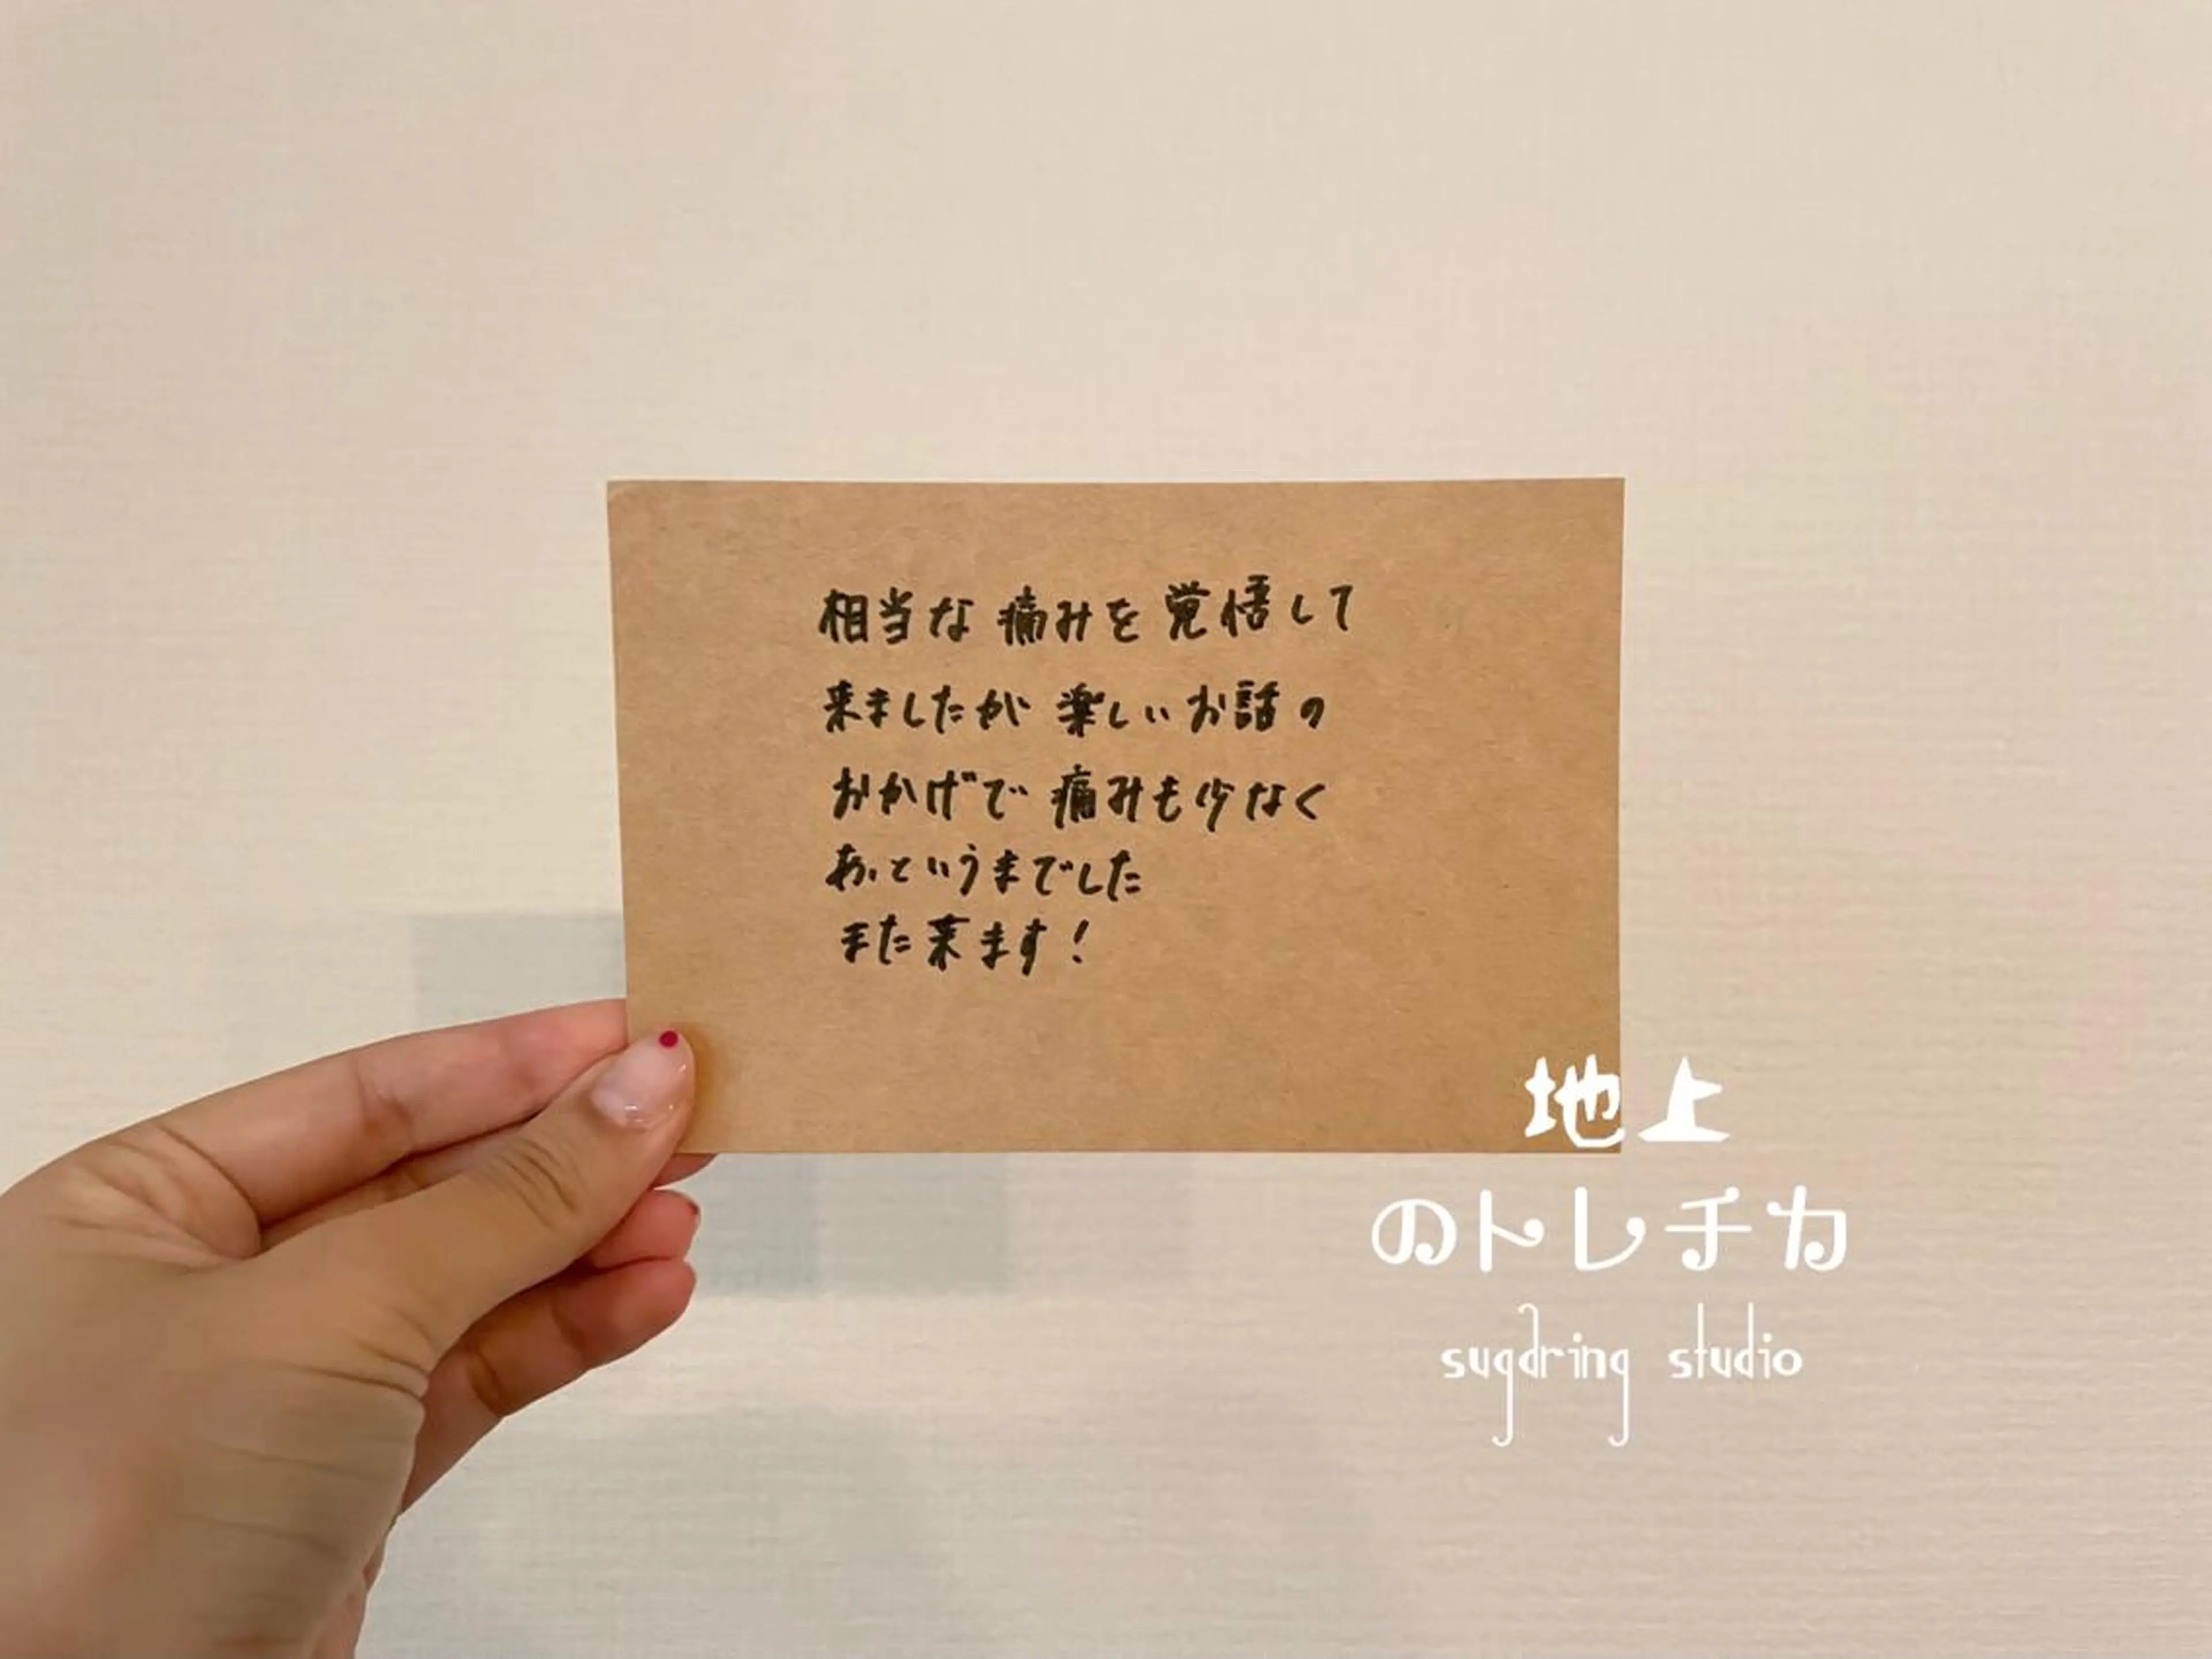 相当な痛みを覚悟して
来ましたが楽しいお話の
おかげで痛みも少なく
あっというまでした
また来ます!
地上
のトレチカ
sugaring studio